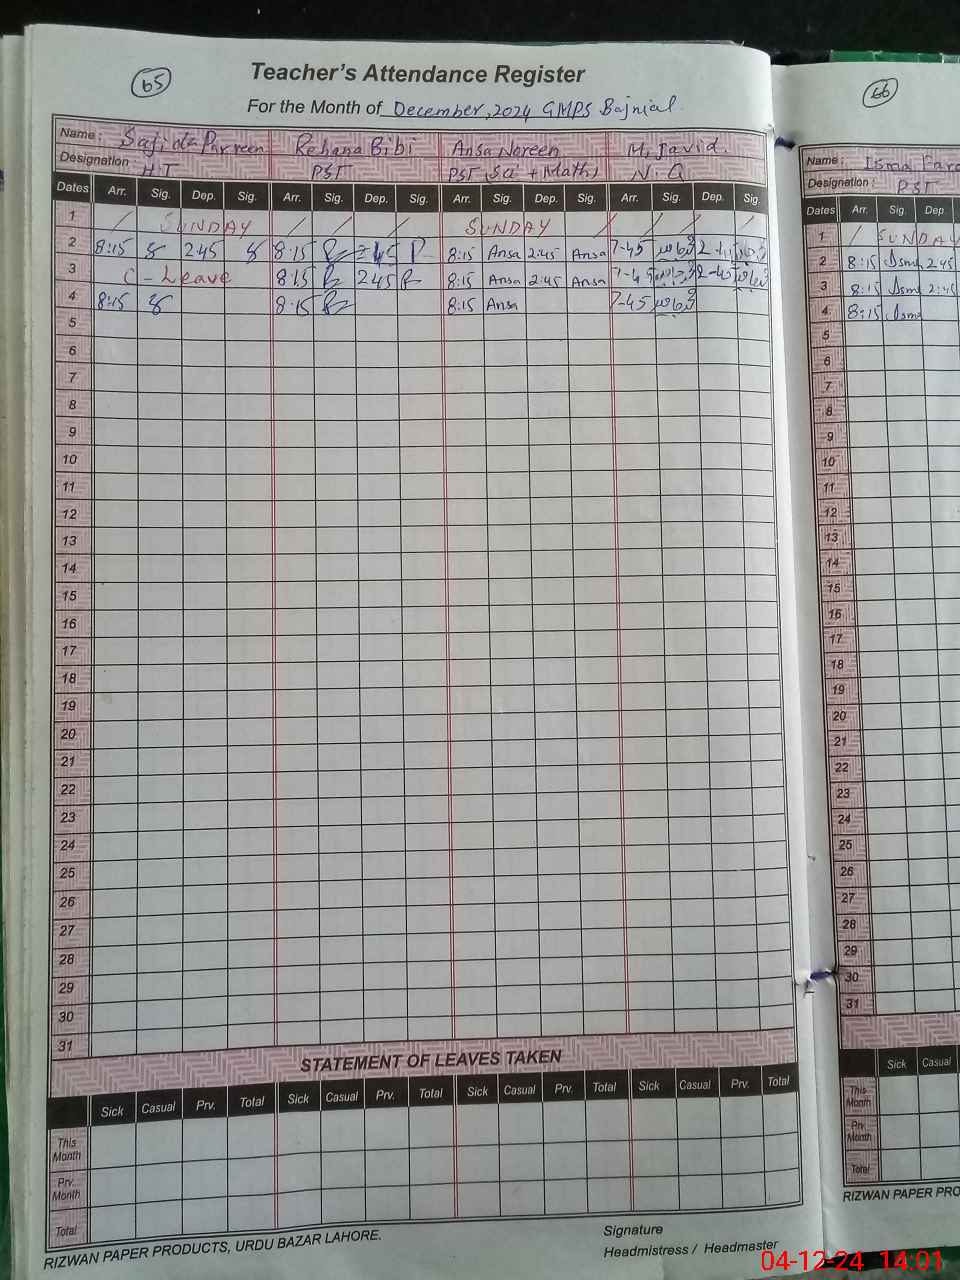 65
Teacher's Attendance Register
For the Month of December, 2024 GMPS Bajnial
Name: Sajida Parveen Rehana Bibi Ansa Noreen M. Javid.
Designation HT PST PST (Sci + Math) N. Q
Dates Arr. Sig. Dep. Sig. Arr. Sig. Dep. Sig. Arr. Sig. Dep. Sig. Arr. Sig. Dep. Sig.
1 / SUNDAY / / / SUNDAY / / / / /
2 8:15 245 8:15 245 8:15 Ansa 2:45 Ansa 7-45 2-45
3 C - Leave 8:15 245 8:15 Ansa 2:45 Ansa 7-45 2-45
4 8:15 8:15 8:15 Ansa 7-45
5
6
7
8
9
10
11
12
13
14
15
16
17
18
19
20
21
22
23
24
25
26
27
28
29
30
31
STATEMENT OF LEAVES TAKEN
Sick Casual Prv. Total Sick Casual Prv. Total Sick Casual Prv. Total Sick Casual Prv. Total
This Month
Prv. Month
Total
RIZWAN PAPER PRODUCTS, URDU BAZAR LAHORE.
Signature
Headmistress / Headmaster
66
Name: Isma Faro
Designation: PST
Dates Arr. Sig. Dep.
1 / SUNDAY
2 8:15 Isma 2:45
3 8:15 Isma 2:45
4 8:15 Isma
5
6
7
8
9
10
11
12
13
14
15
16
17
18
19
20
21
22
23
24
25
26
27
28
29
30
31
Sick Casual
This Month
Prv. Month
Total
RIZWAN PAPER PRO
04-12-24 14:01